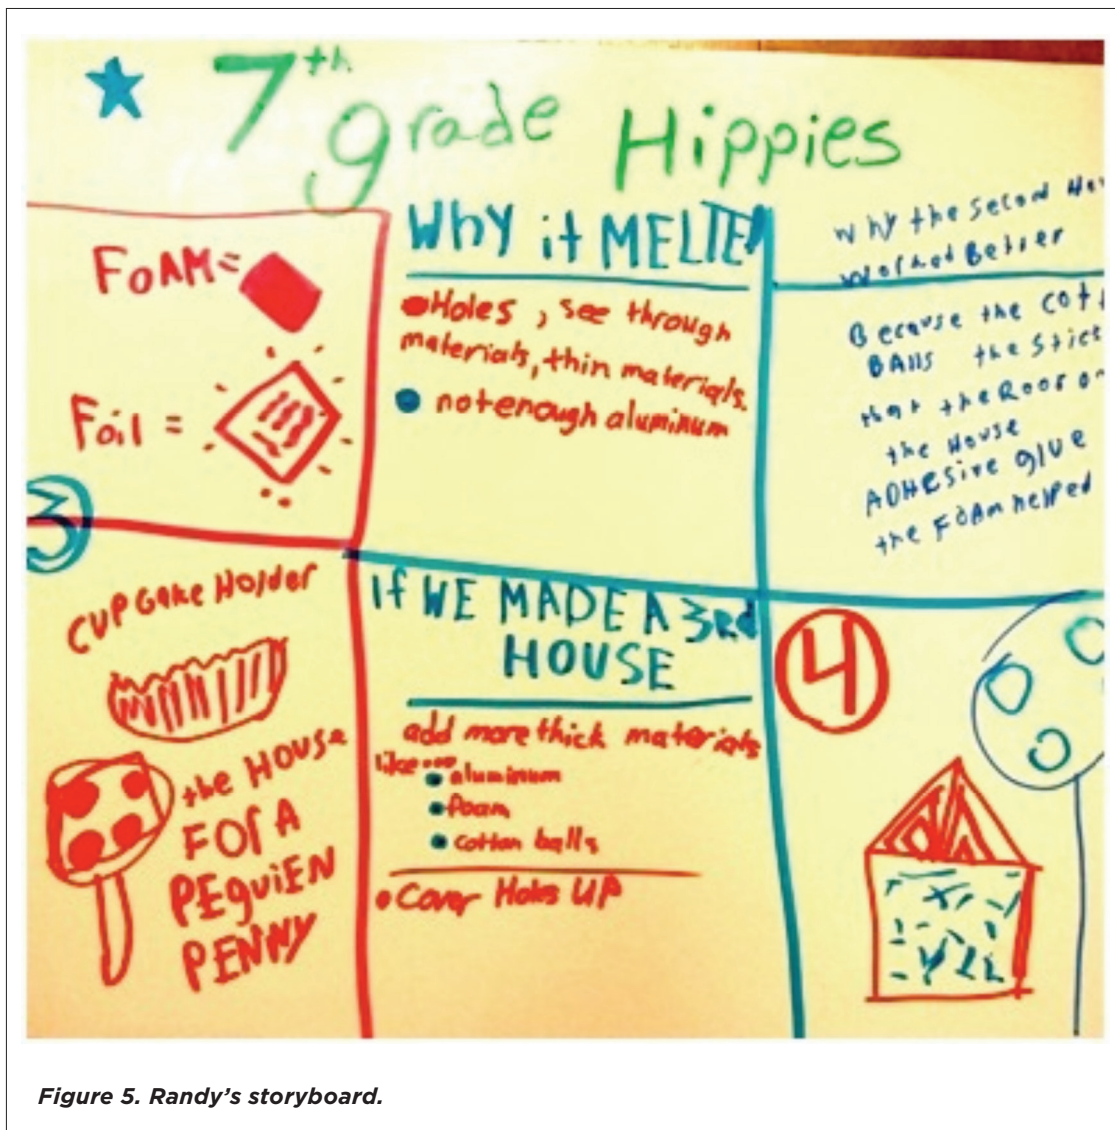 7th grade Hippies
FOAM =
Foil =
3
CUPCake Holder
the HOUSE
FOr A
PEguiEN
PENNY
Why it MELTED
Holes, see through
materials, thin materials.
not enough aluminum
If WE MADE A 3rd
HOUSE
add more thick materials
like...
aluminum
foam
cotton balls
Cover Holes UP
Why the Second
Worked Better
Because the
BAlls the Stics
that the Roof
the House
ADHesive glue
the FOAm helped
4
Figure 5. Randy's storyboard.